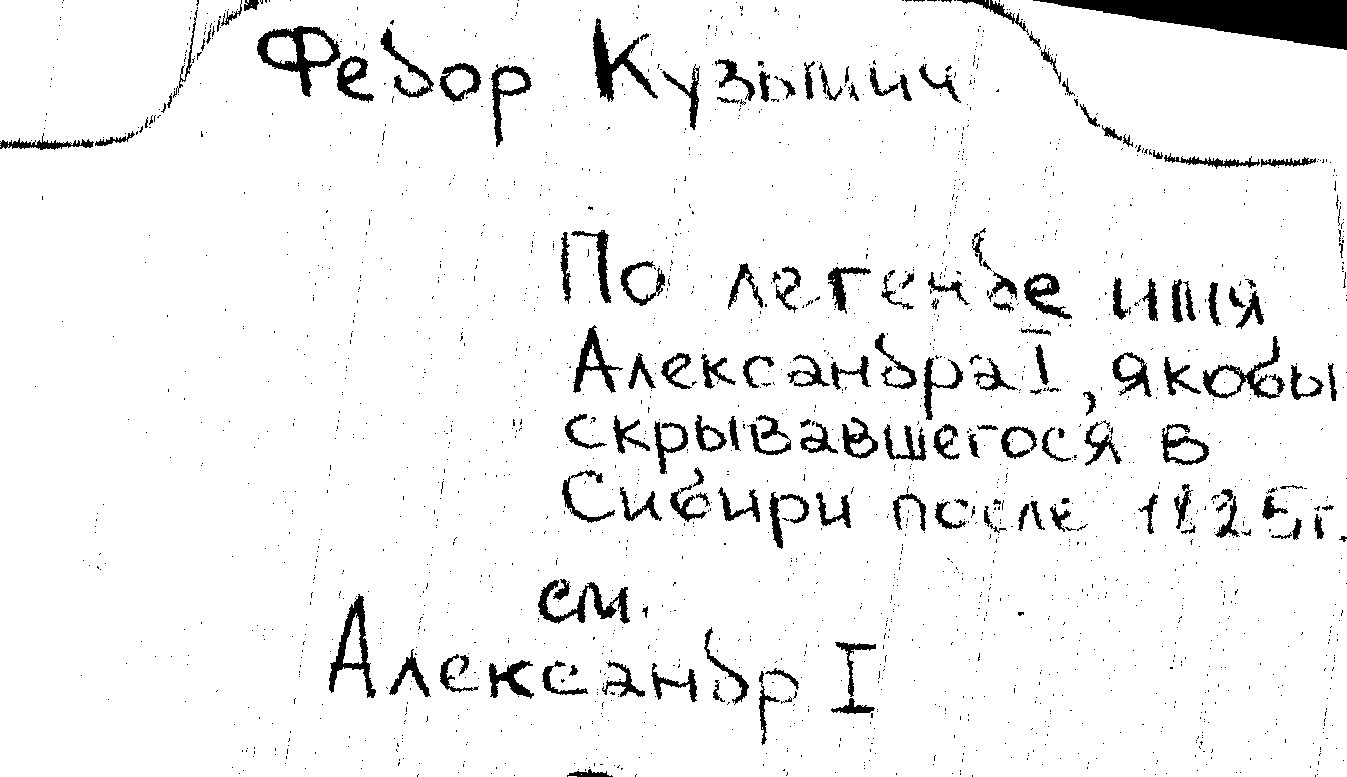 Федор Кузьмич
По легенде имя
Александра I, якобы
скрывавшегося в
Сибири после 1825г.
см.
Александр I